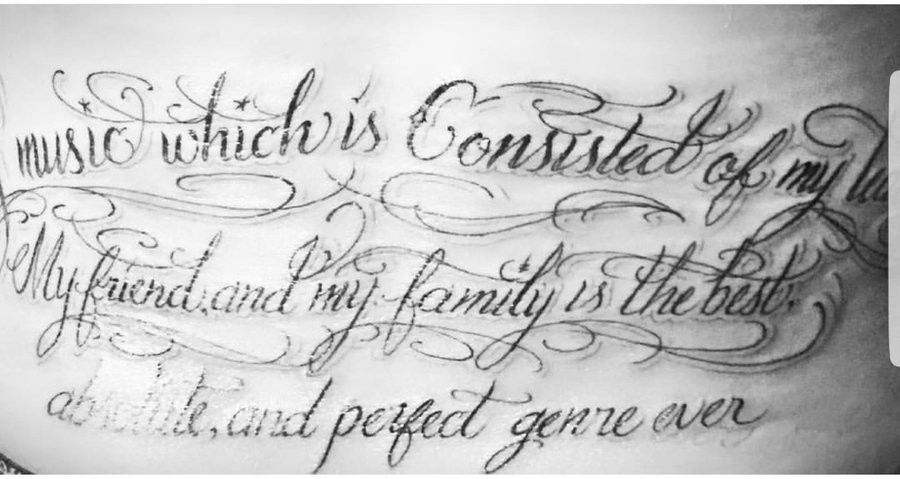 music which is Consisted of my
My friend, and my family is the best.
absolute, and perfect genre ever